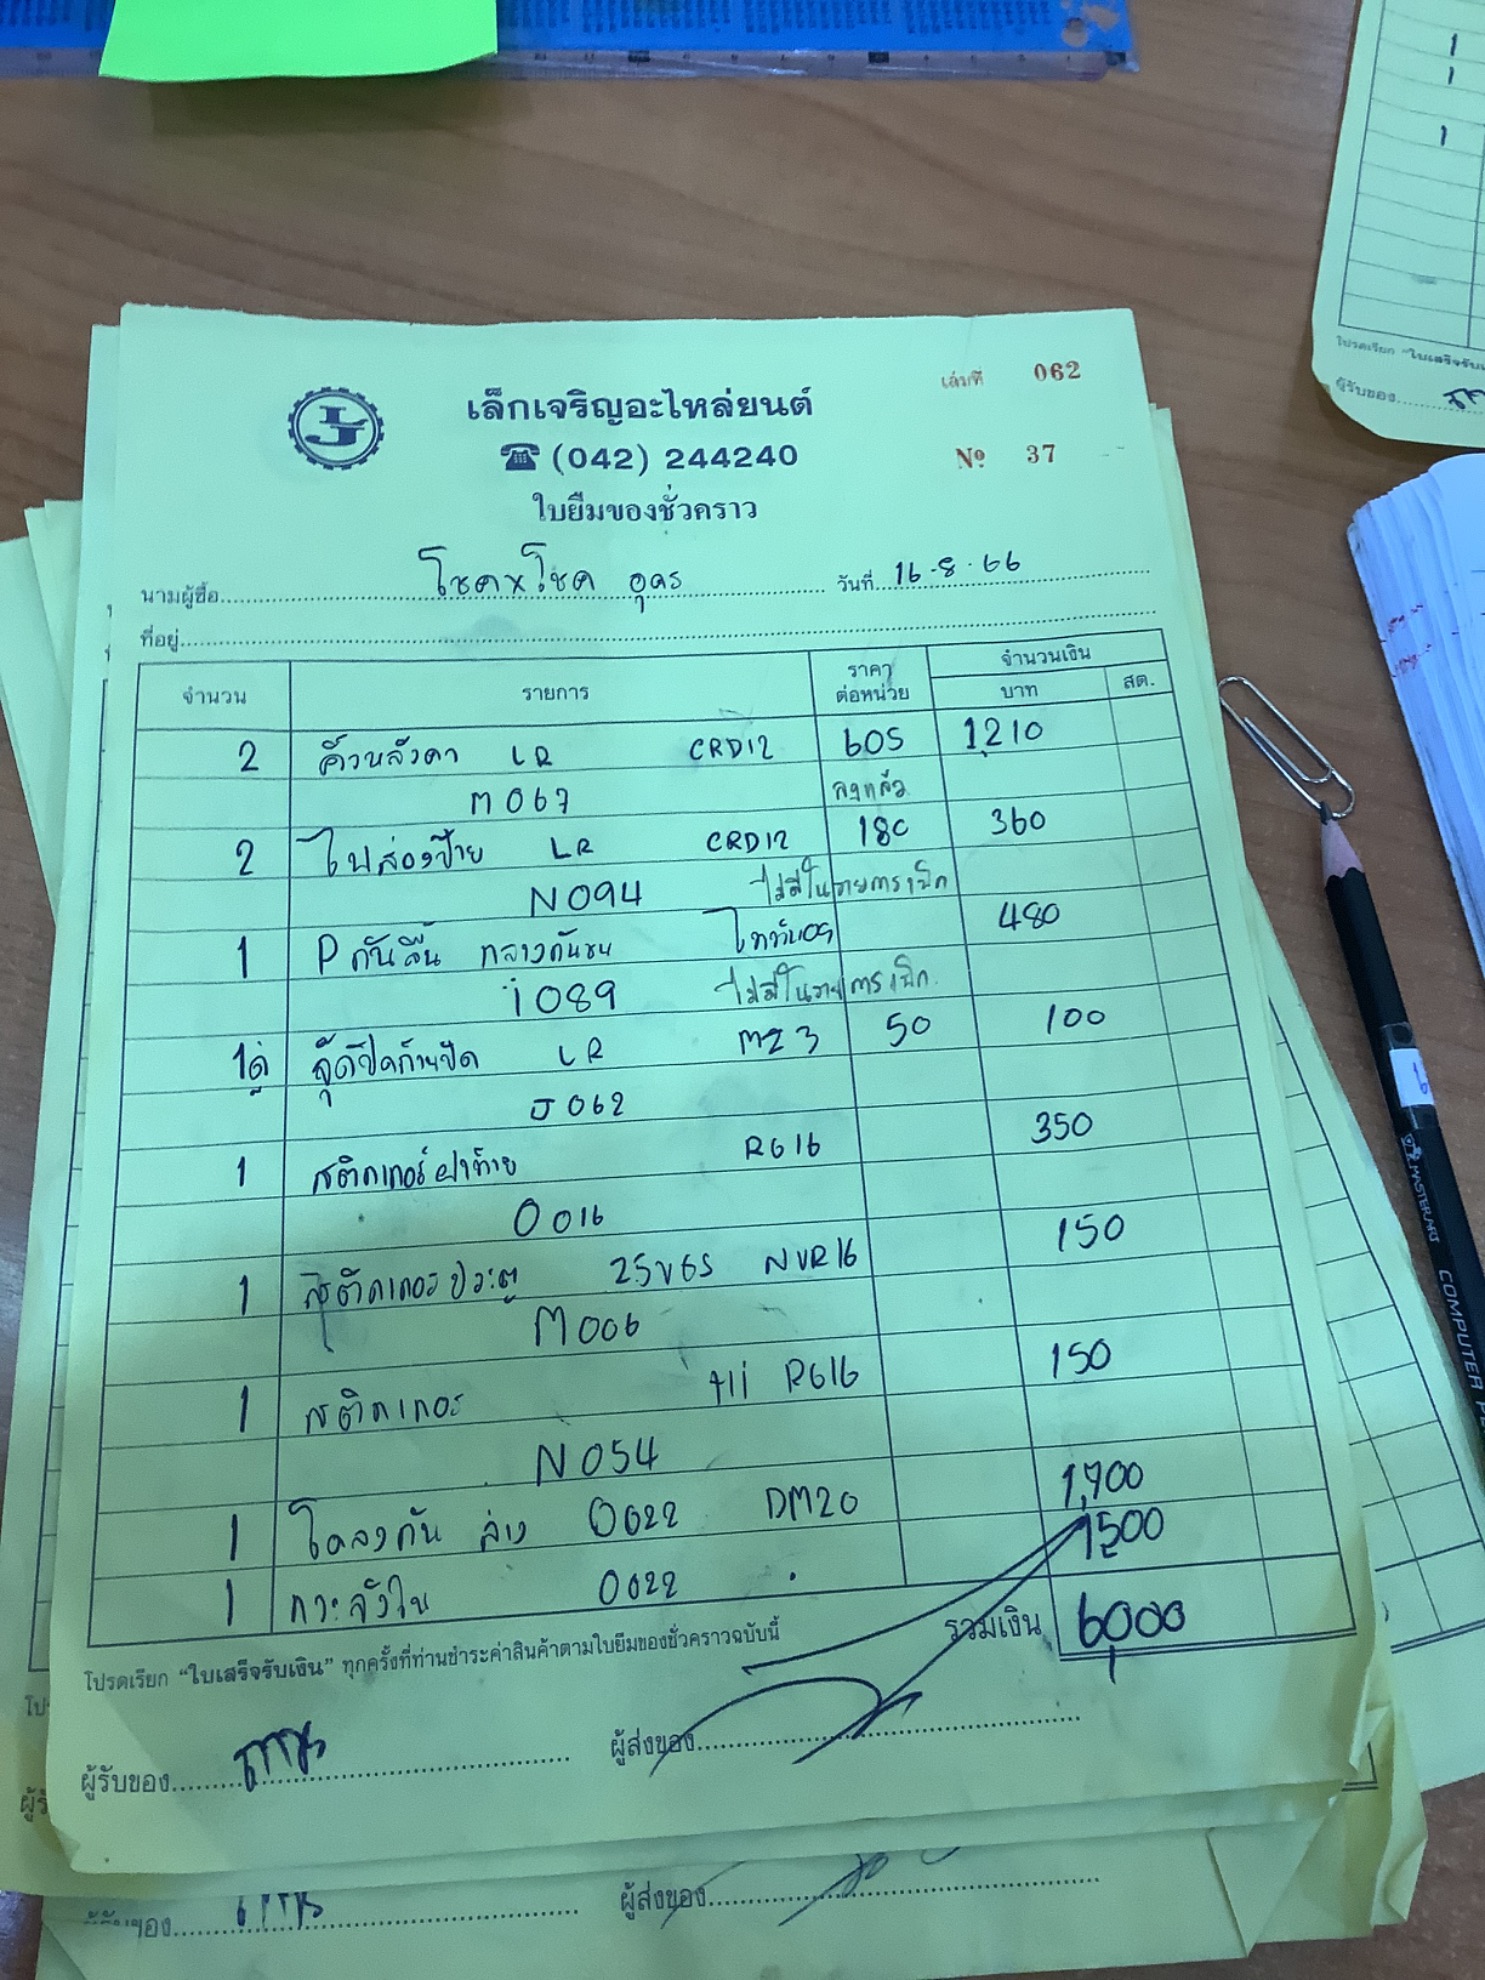 เล่มที่ 062
เล็กเจริญอะไหล่ยนต์
(042) 244240
№ 37
ใบยืมของชั่วคราว
นามผู้ซื้อ โชคxโชค อุดร วันที่ 16-8-66
ที่อยู่
จำนวน รายการ ราคาต่อหน่วย จำนวนเงิน บาท สต.
2 คิ้วหลังคา LR CRD12 605 1,210
M067 ลงแล้ว
2 ไฟส่องป้าย LR CRD12 180 360
N094 ไม่มีในรายการเบิก
1 P กันลื่น กลางกันชน ไททันอด 480
i089 ไม่มีในรายการเบิก
1คู่ จุ๊ดปิดก้านปัด LR MZ3 50 100
J062
1 สติกเกอร์ฝาท้าย RG16 350
O016
1 สติกเกอร์ประตู 25VGS NVR16 150
M006
1 สติกเกอร์ RG16 150
N054
1 โครงกัน ล่าง O022 DM20 1,700
1 กระจังใน O022 1,500
รวมเงิน 6,000
โปรดเรียก "ใบเสร็จรับเงิน" ทุกครั้งที่ท่านชำระค่าสินค้าตามใบยืมของชั่วคราวฉบับนี้
ผู้รับของ ผู้ส่งของ
ผู้รับของ ผู้ส่งของ
MASTERART COMPUTER